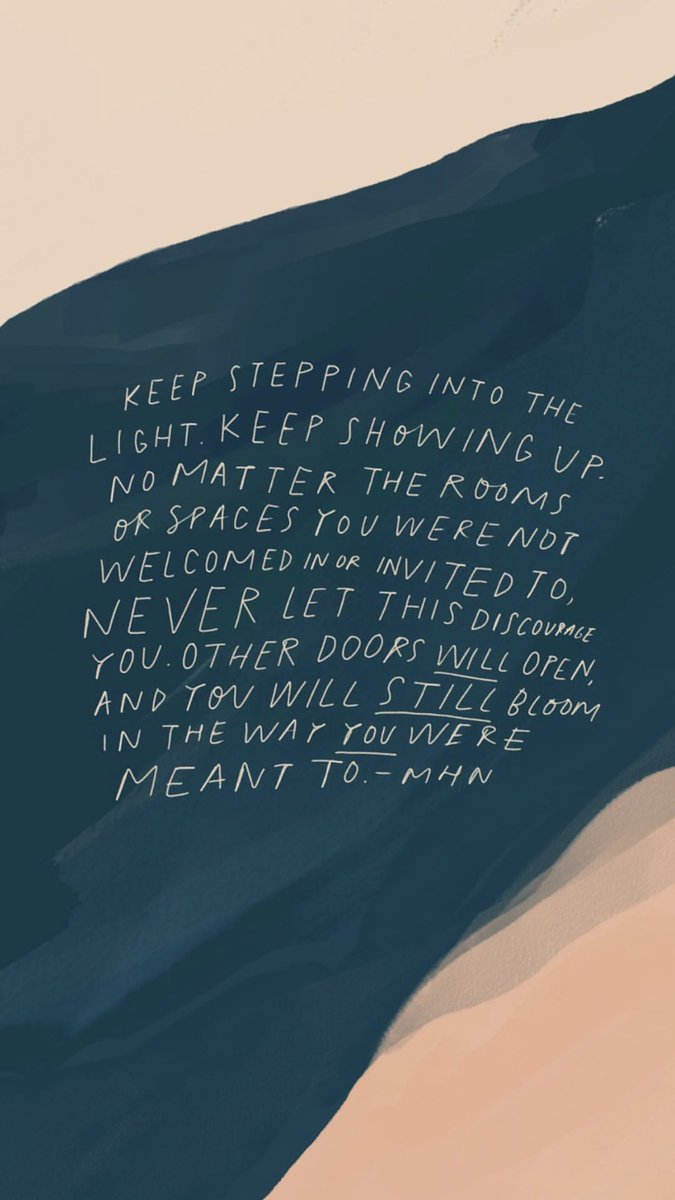 KEEP STEPPING INTO THE
LIGHT. KEEP SHOWING UP.
NO MATTER THE ROOMS
OR SPACES YOU WERE NOT
WELCOMED IN OR INVITED TO,
NEVER LET THIS DISCOURAGE
YOU. OTHER DOORS WILL OPEN,
AND YOU WILL STILL BLOOM
IN THE WAY YOU WERE
MEANT TO. – MHN